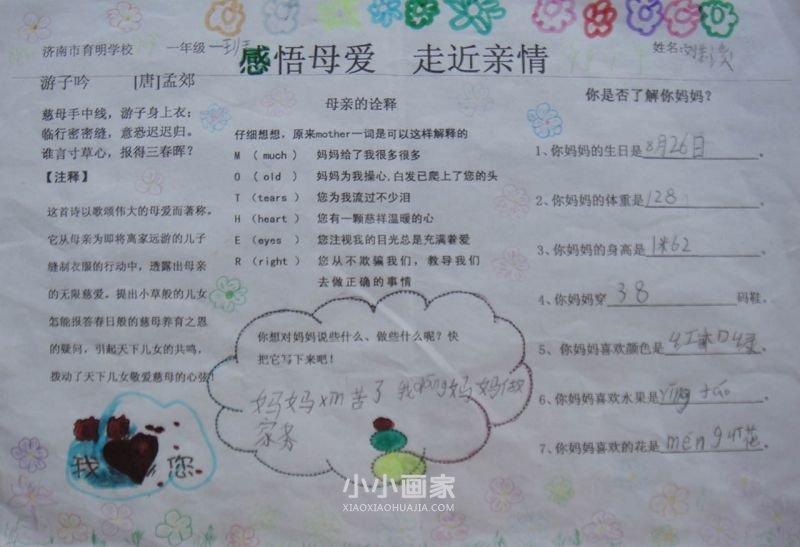 济南市育明学校 一年级一班
感悟母爱 走近亲情
姓名:
游子吟 [唐]孟郊
慈母手中线,游子身上衣;
临行密密缝,意恐迟迟归。
谁言寸草心,报得三春晖?
【注释】
这首诗以歌颂伟大的母爱而著称。
它从母亲为即将离家远游的儿子
缝制衣服的行动中,透露出母亲
的无限慈爱。提出小草般的儿女
怎能报答春日般的慈母养育之恩
的疑问,引起天下儿女的共鸣,
拨动了天下儿女敬爱慈母的心弦!
我 您
母亲的诠释
仔细想想,原来mother一词是可以这样解释的
M (much) 妈妈给了我很多很多
O (old) 妈妈为我操心,白发已爬上了您的头
T (tears) 您为我流过不少泪
H (heart) 您有一颗慈祥温暖的心
E (eyes) 您注视我的目光总是充满着爱
R (right) 您从不欺骗我们,教导我们
去做正确的事情
你想对妈妈说些什么、做些什么呢?快
把它写下来吧!
妈妈xin苦了 我bāng妈妈做
家务
你是否了解你妈妈?
1、你妈妈的生日是8月26日。
2、你妈妈的体重是128。
3、你妈妈的身高是1米62。
4、你妈妈穿38码鞋。
5、你妈妈喜欢颜色是红和绿。
6、你妈妈喜欢水果是。
7、你妈妈喜欢的花是。
小小画家
XIAOXIAOHUAJIA.COM